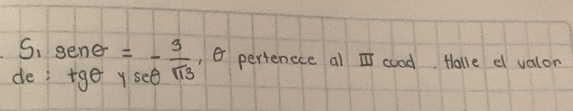 . Si senθ = - 3/√13, θ pertenece al III cuad. Halle el valor
de: tgθ y scθ